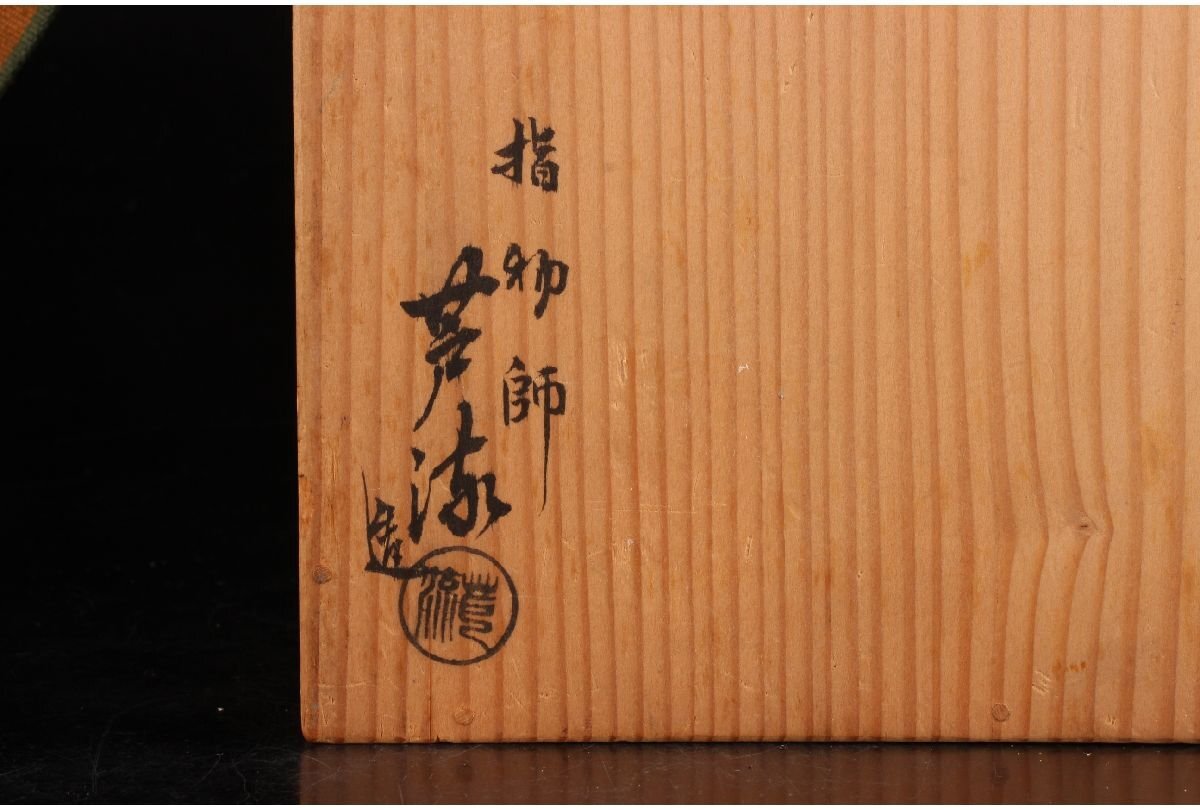 指物師
芦漆造